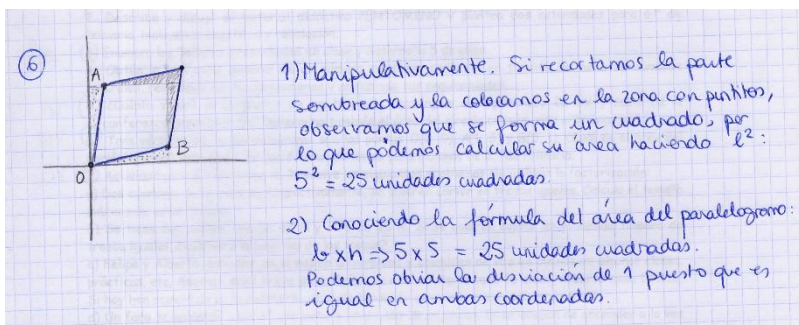 6
A
B
O
1) Manipulativamente. Si recortamos la parte
sombreada y la colocamos en la zona con puntitos,
observamos que se forma un cuadrado, por
lo que podemos calcular su área haciendo l²:
5² = 25 unidades cuadradas.
2) Conociendo la fórmula del área del paralelogramo:
b x h => 5 x 5 = 25 unidades cuadradas.
Podemos obviar la desviación de 1 puesto que es
igual en ambas coordenadas.